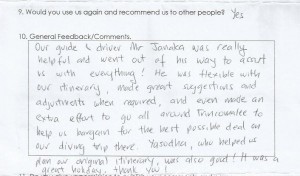 9. Would you use us again and recommend us to other people? Yes
10. General Feedback/Comments.
Our guide & driver Mr Janaka was really
helpful and went out of his way to assist
us with everything! He was flexible with
our itinerary, made great suggestions and
adjustments when required, and even made an
extra effort to go all around Trincomalee to
help us bargain for the best possible deal on
our diving trip there. Yasodha, who helped us
plan our original itinerary, was also good! It was a
great holiday, thank you!